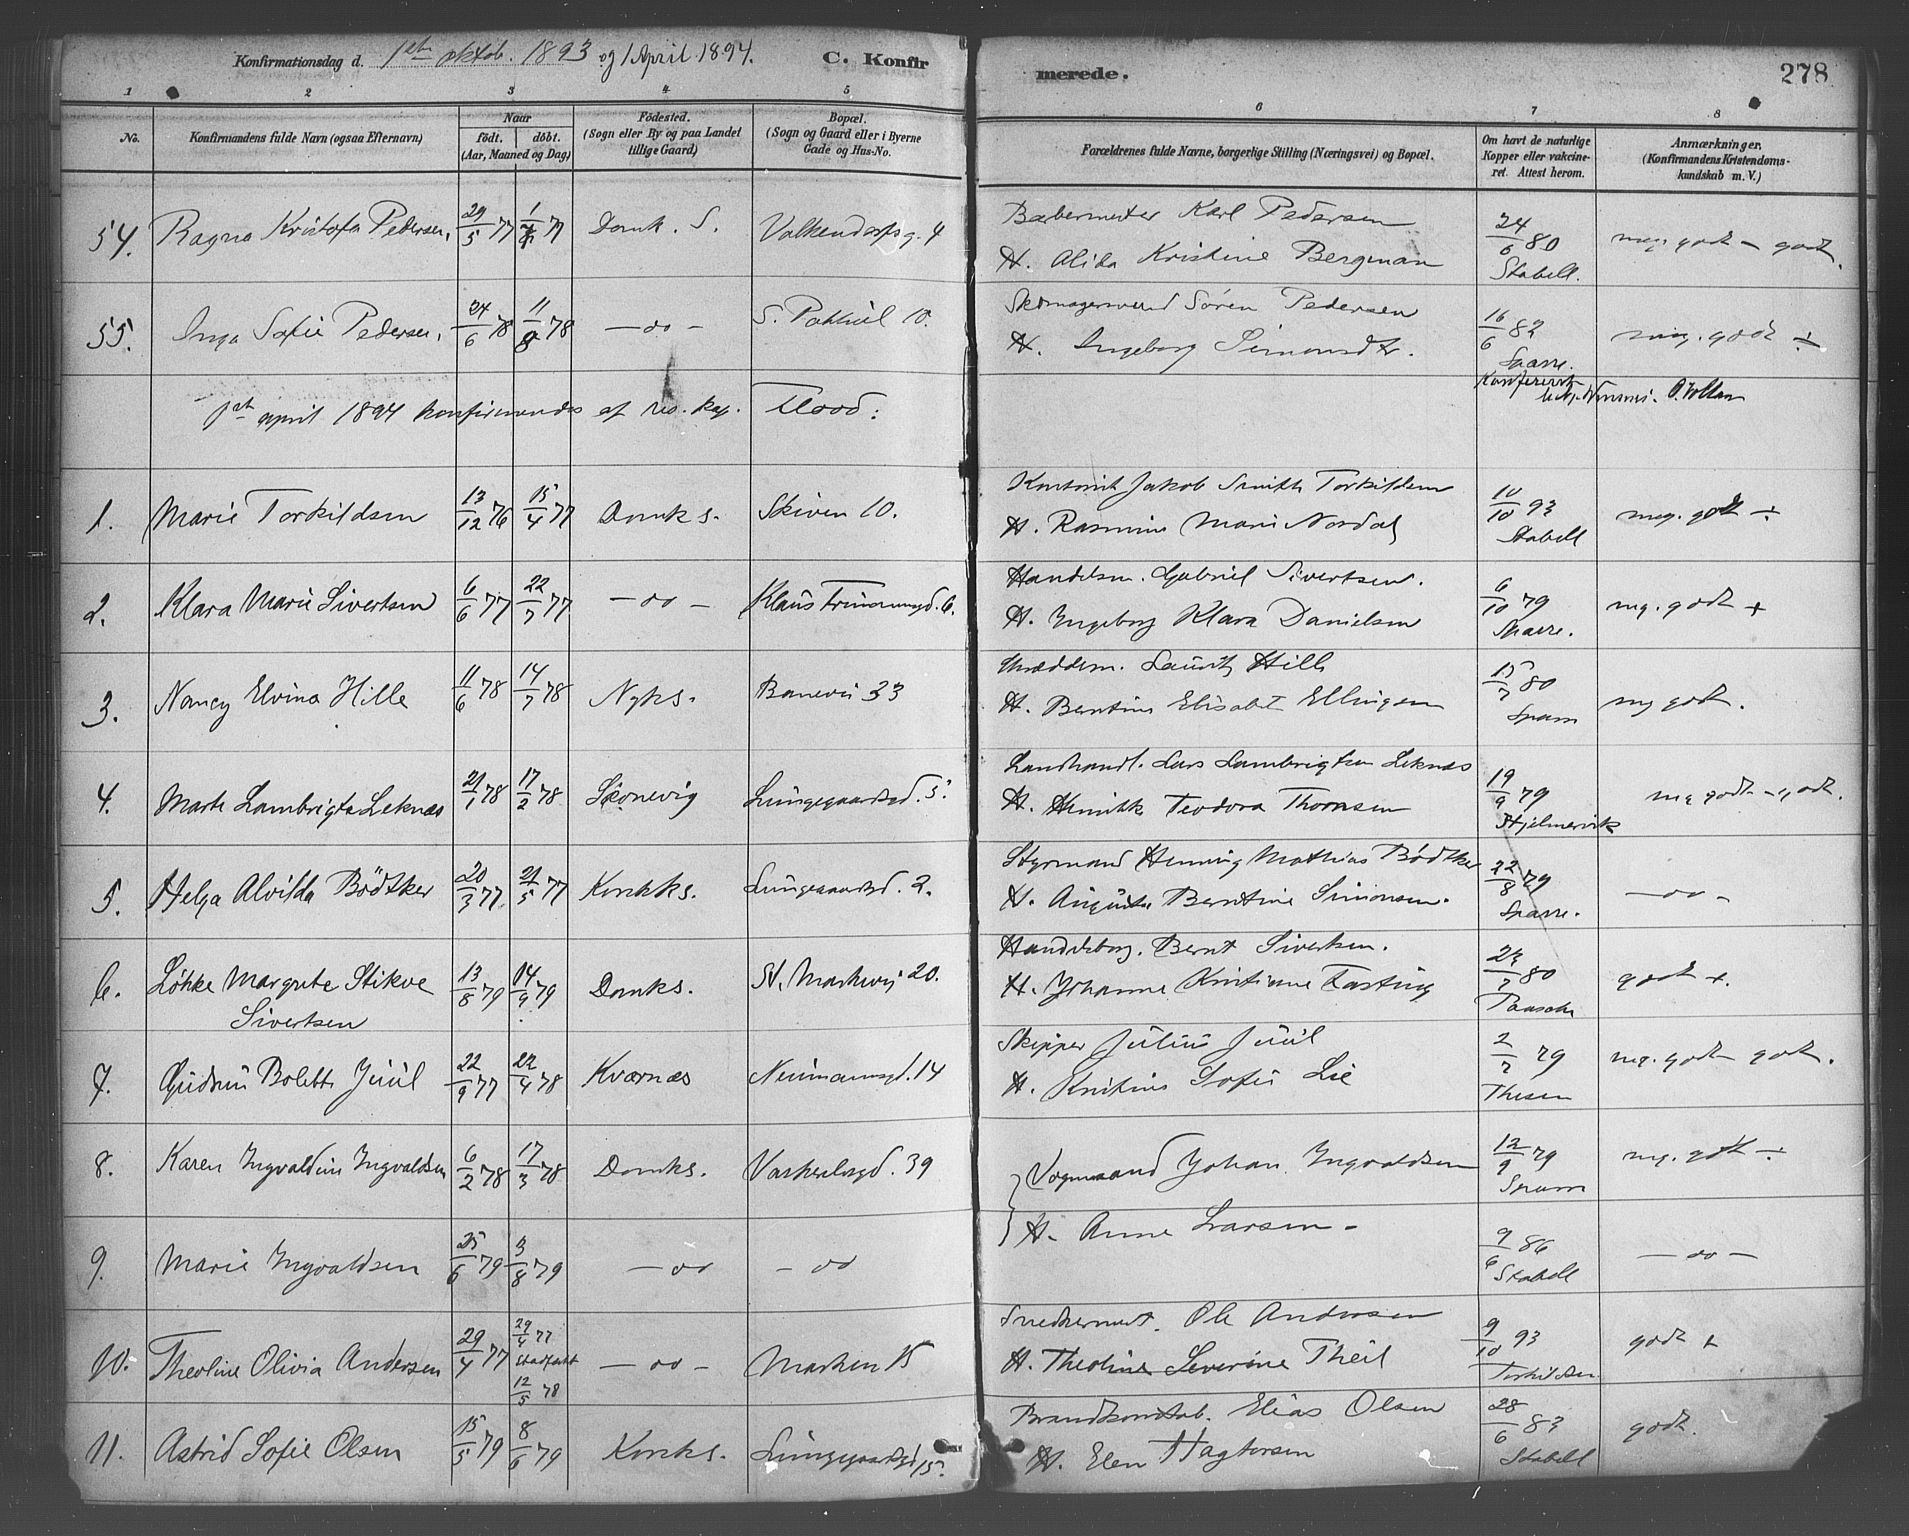 Konfirmationsdag d. 1ste oktob. 1893 og 1 April 1894. C. Konfirmerede. 278
1 2 3 4 5 6 7 8
No. Konfirmandens fulde Navn (ogsaa Efternavn) Naar födt. döbt. (Aar, Maaned og Dag) Födested. (Sogn eller By og paa Landet tillige Gaard) Bopæl. (Sogn og Gaard eller i Byerne Gade og Hus-No. Forældrenes fulde Navne, borgerlige Stilling (Næringsvei) og Bopæl. Om havt de naturlige Kopper eller vakcineret. Attest herom. Anmærkninger. (Konfirmandens Kristendomskundskab m. V.)
54. Ragna Kristofa Pedersen, 29/5 77 77 Domk. S. Valkendorfsg. 4 Barbermester Karl Pedersen 24/6 80 meg. godt - godt.
H. Alida Kristine Bergman Stabell.
55. Inga Sofie Pedersen, 24/6 78 11/8 78 — do — 10. Skomagersvend Sören Pedersen 16/6 82 meg. godt ÷
H. Ingeborg Simonsdtr. Sparre.
1ste april 1894 konfirmendes af res. kap. Flood:
1. Marie Torkildsen 13/12 76 15/4 77 Domks. Skiven 10. Kontorist Jakob Smith Torkildsen 10/10 93 meg. godt ÷
H. Rasmine Marie Nordal Stabell
2. Klara Marie Sivertsen 6/6 77 22/7 77 — do — Klaus 6. Handelsm. Gabriel Sivertsen. 6/10 79 mg. godt +
H. Ingeborg Klara Danielsen Sparre.
3. Nancy Elvina Hille 11/6 78 14/7 78 Nyks. Banevei 33 Skræddem. Lauritz Hille 15/7 80 mg godt.
H. Bentine Elisabet Ellingsen Sparre
4. Marta Lambrigta Leknæs 21/1 78 17/2 78 Skonevig Lungegaardsgd. 5. Landhandl. Lars Lambrigtsen Leknæs 19/9 79 mg godt - godt.
H. Henrikke Teodora Thomsen Hjelmervik
5. Helga Alvilda Bödtker 20/3 77 21/5 77 Korskks. Lungegaardsgd. 2. Styrmand Henning Mathias Bödtker 22/8 79 — do —
H. Augusta Berntine Simonsen. Sparre.
6. Löhke Margrete Stikve 13/8 79 14/9 79 Domks. St. Markevei 20. Handelsborg. Bernt Sivertsen. 23/7 80 godt +.
Sivertsen H. Johanne Kristiane Fasting Paasche
7. Gudrun Bolette Juul 22/9 77 22/4 78 Kværnæs Neumannsgd. 14 Skipper Julius Juul 2/7 79 mg. godt - godt.
H. Kristine Sofie Lie Thesen
8. Karen Ingvaldine Ingvaldsen 6/2 78 17/3 78 Domks. Vaskerelvsgd. 39 Vognmand Johan Ingvaldsen 12/9 79 mg. godt ÷
H. Anne Larsen - Sparre
9. Marie Ingvaldsen 25/6 79 3/8 79 — do — do 9/6 86 — do —
Stabell
10. Theoline Olivia Andersen 29/4 77 29/4 77 Stadfæstet 12/5 78 — do — Marken 15 Snedkermest. Ole Andersen 9/10 93 godt +
H. Theoline Severine Theil Torkildsen
11. Astrid Sofie Olsen 15/5 79 8/6 79 Korsks. Lungegaardsgd 15. Brandkonstab. Elias Olsen 28/6 83 godt.
H. Elen Hagtorsen Stabell